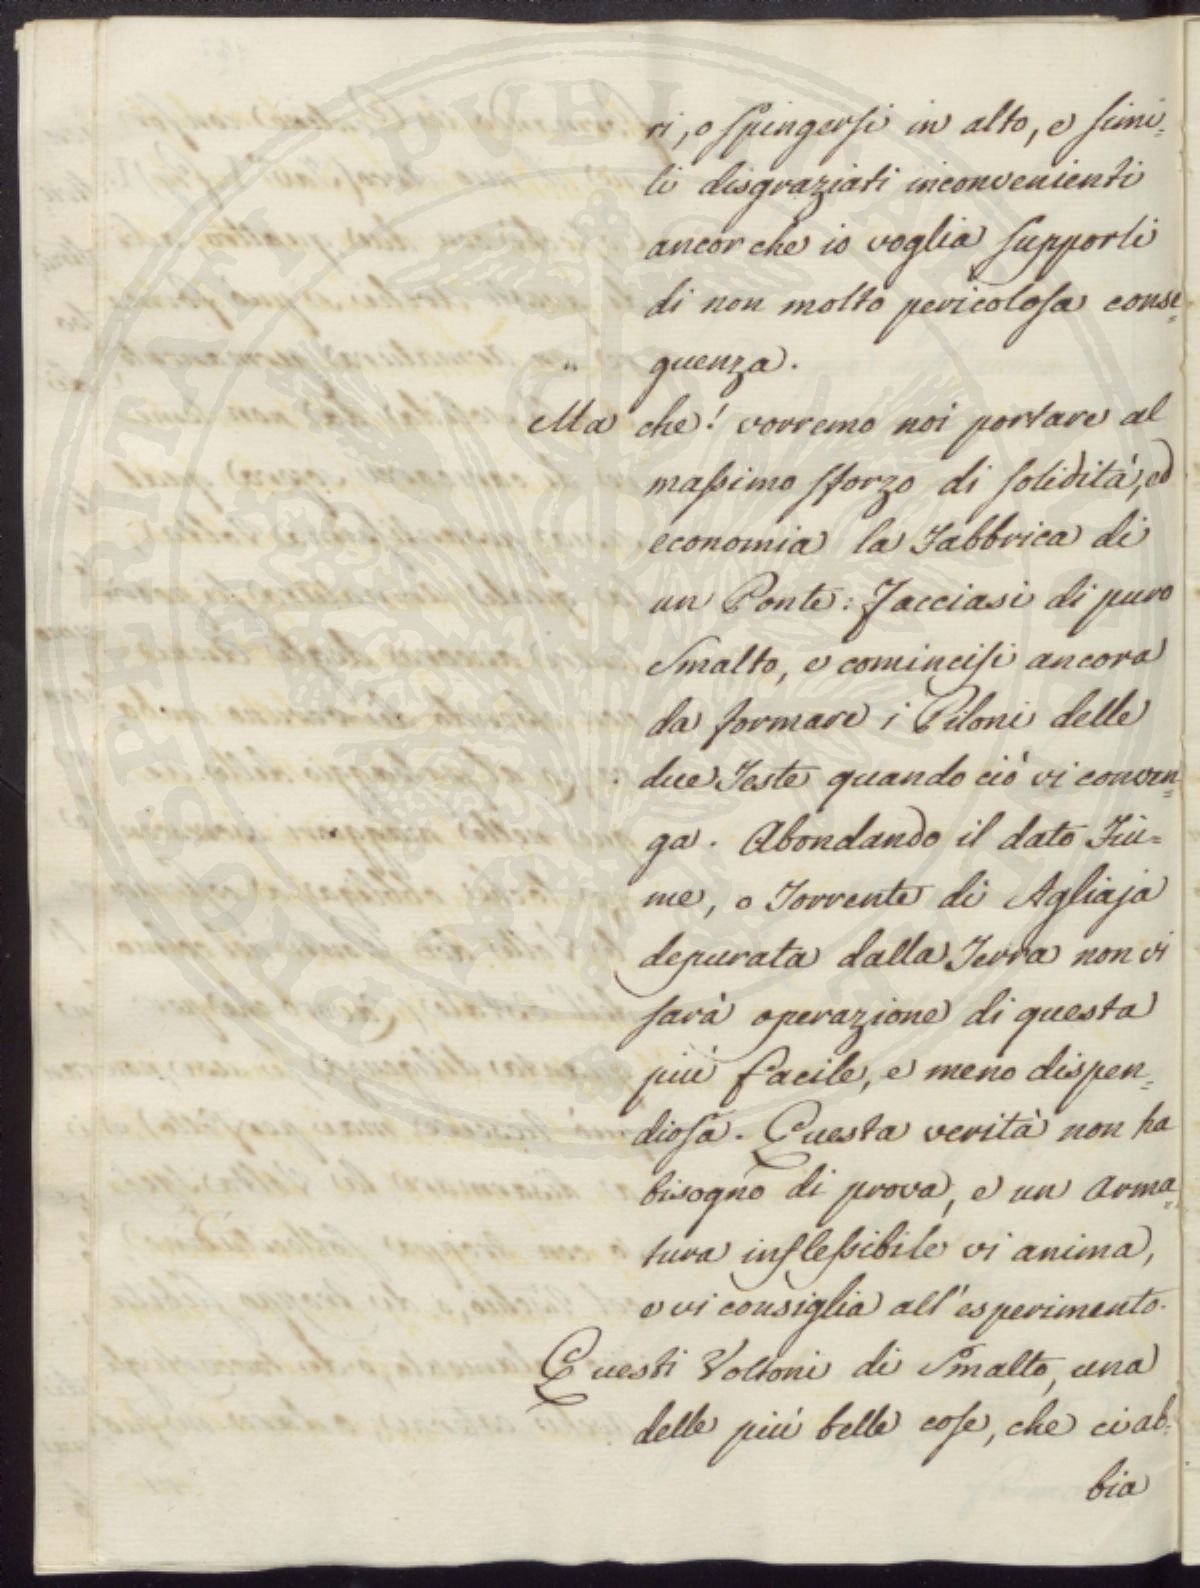 ri, o spingersi in alto, e simi=
li disgraziati inconvenienti
ancor che io voglia supporli
di non molto pericolosa conse=
guenza.
Ma che! vorremo noi portare al
massimo sforzo di solidità, ed
economia la Fabbrica di
un Ponte: Facciasi di puro
Smalto, e comincisi ancora
da formare i Piloni delle
due Teste quando ciò vi conven=
ga. Abondando il dato Fiu=
me, o Torrente di Agliaja
depurata dalla Terra non vi
sarà operazione di questa
più facile, e meno dispen=
diosa. Questa verità non ha
bisogno di prova, e un Arma=
tura inflessibile vi anima,
e vi consiglia all'esperimento.
Questi Voltoni di Smalto, una
delle più belle cose, che ci ab=
bia